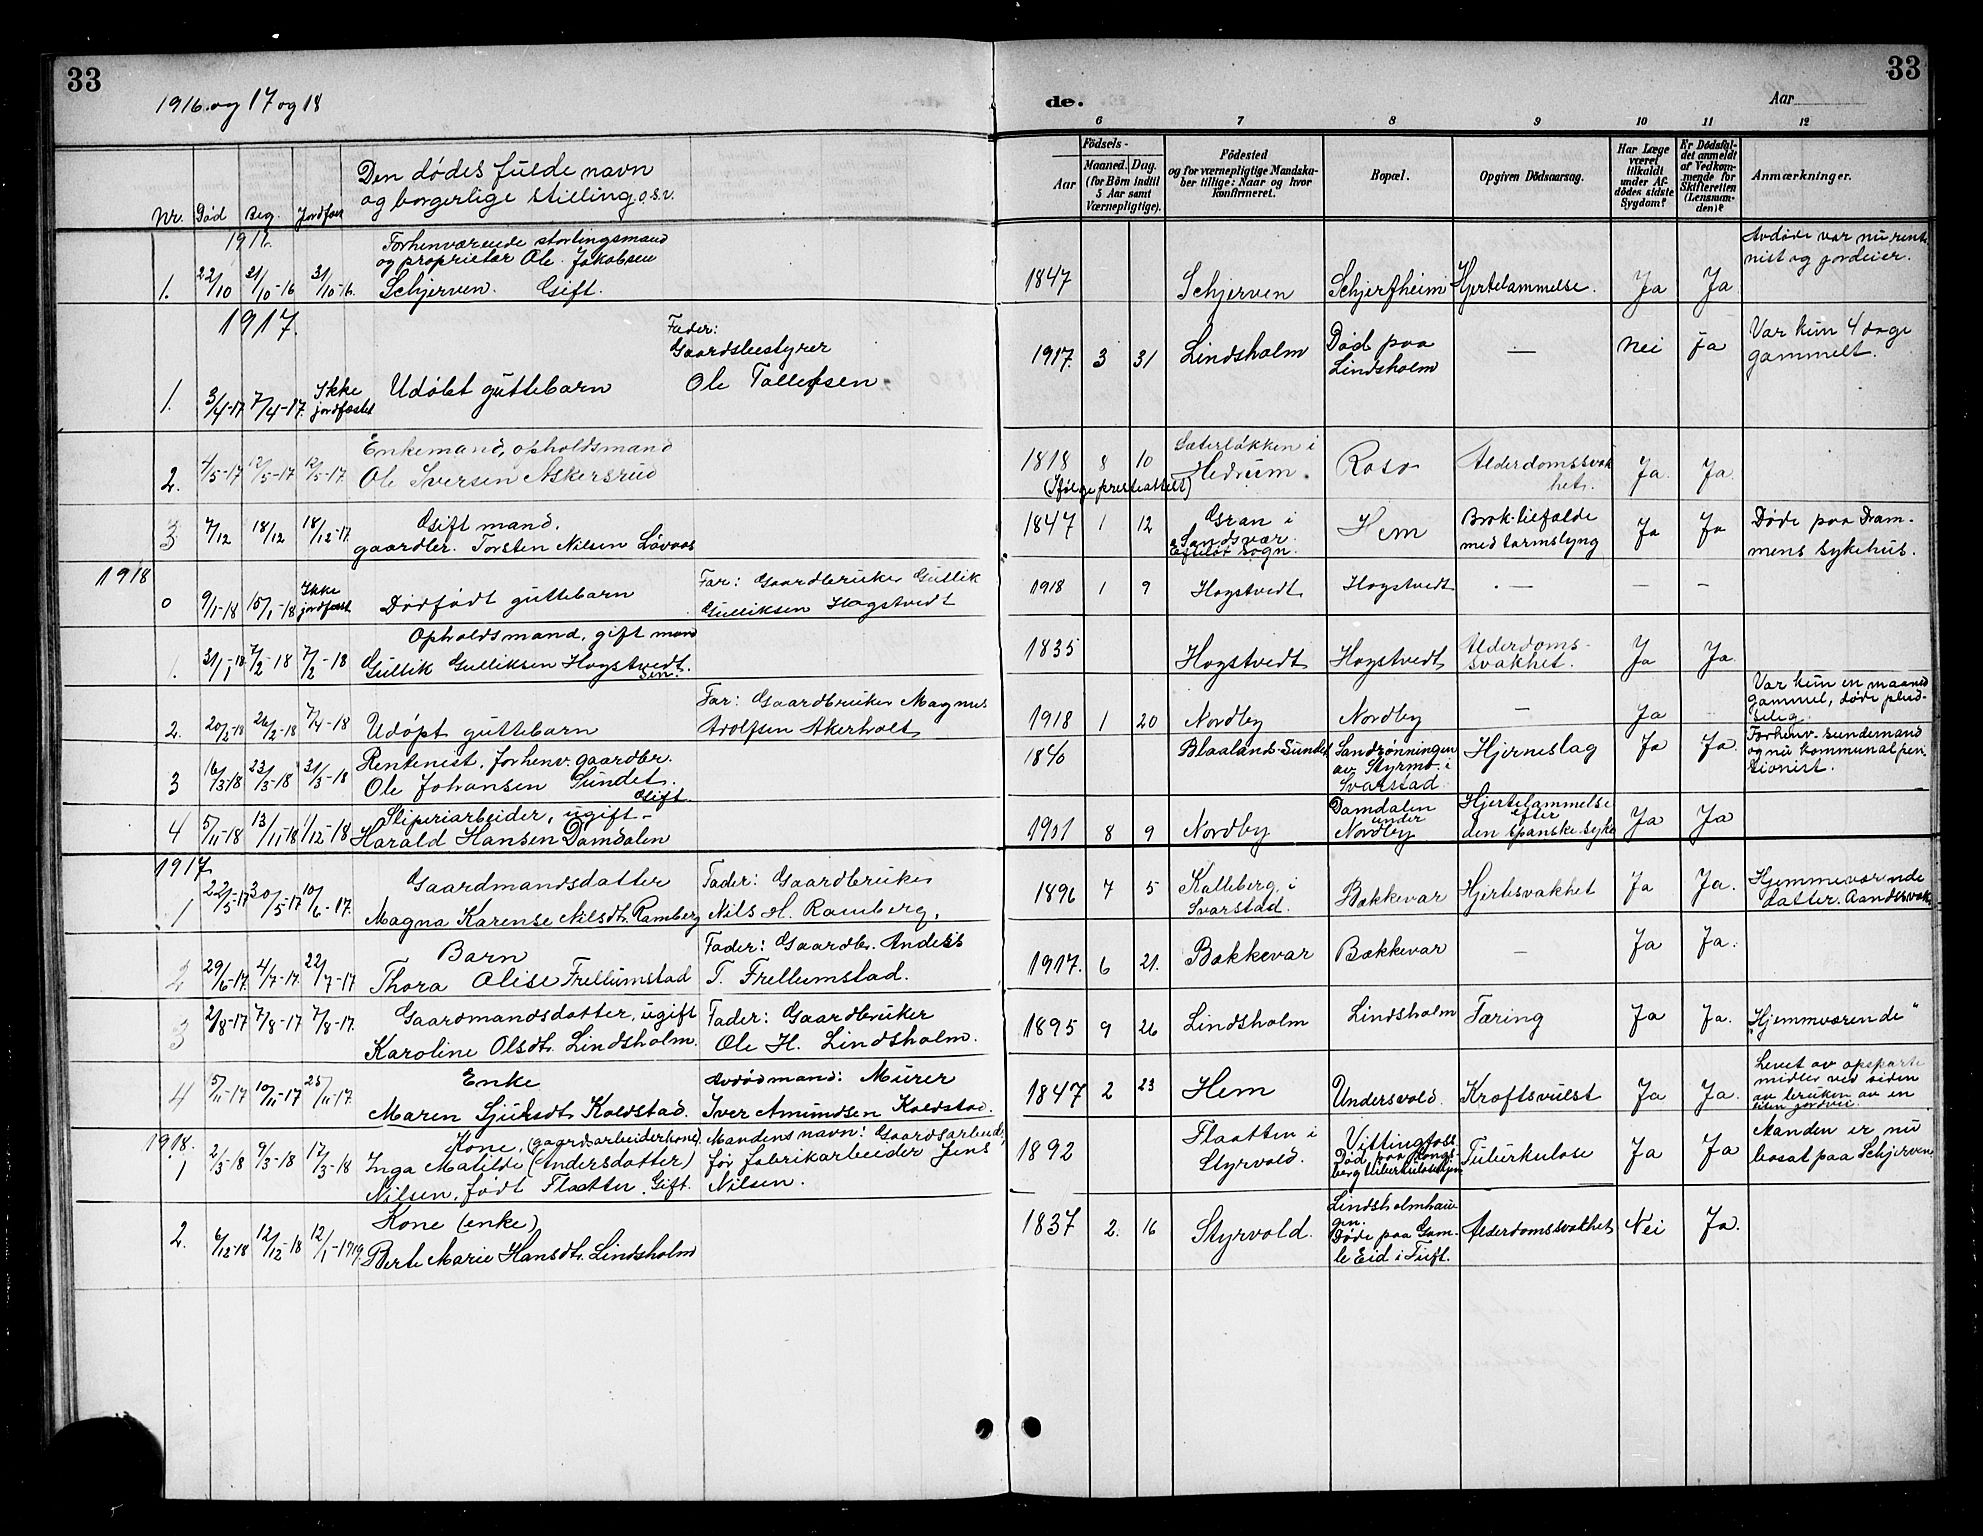 33
33
1916. og 17 og 18
de.
Aar
6 7 8 9 10 11 12
Nr. Død Beg. Jordfæst
Den dødes fulde navn
og borgerlige stilling o.s.v.
Aar
Födsels-
Maaned. Dag.
(for Børn indtil
5 Aar samt
Værnepligtige).
Födested
og for værnepligtige Mandska-
ber tillige: Naar og hvor
konfirmeret.
Bopæl.
Opgiven Dödsaarsag.
Har Læge
været
tilkaldt
under Af-
dödes sidste
Sygdom?
Er Dödsfal-
det anmeldt
af Vedkom-
mende for
Skifteretten
(Lensman-
den)?
Anmærkninger.
1916
Forhenværende stortingsmand
og proprietær Ole Jakobsen
1. 22/10 31/10-16 31/10-16. Schjerven. Gift.
1847 Schjerven Schjerfheim Hjertelammelse. Ja Ja
Avdøde var nu rente-
nist og jordeier.
1917.
Fader:
Gaardsbestyrer
Ole Tollefsen
1. 3/4-17 7/4-17. Ikke
jordfæstet
Udöbt guttebarn
1917. 3 31 Lindsholm Död paa
Lindsholm — Nei Ja
Var kun 4 dage
gammelt.
Enkemand, opholdsmand
2. 4/5-17 12/5-17 12/5-17. Ole Iversen Askersrud
1818 8 10
(Ifølge presteattest)
Sæterløkken i
Hedrum.
Alderdomssvak
het. Ja Ja.
Gift mand.
3 7/12 18/12 18/12-17. gaardbr. Torsten Nilsen Løvaas
1847 1 12 Gran i
Sandsvær.
Efteløt sogn.
Hem
med tarmslyng
Ja Ja
Døde paa Dram-
mens sykehus.
1918
0 9/1-18 15/1-18 Ikke
jordfæst
Dødfødt guttebarn
Far: Gaardbruker Gullik
Gulliksen Hogstvedt
1918 1 9 Hogstvedt Hogstvedt — — —
Opholdsmand, gift man
1. 31/1-18 7/2-18 7/2-18 Gullik Gulliksen Hogstvedt
sen.
1835 Hogstvedt Hogstvedt Alderdoms-
svakhet. Ja Ja.
2. 20/2-18 26/2-18 7/4-18 Udöpt guttebarn
Far: Gaardbruker Magnus
Adolfsen Akerholt
1918 1 20 Nordby Nordby — Ja —
Var kun en maaned
gammel, døde plud-
selig.
Rentenist, forhenv. gaardbr.
3 16/3-18 23/3-18 31/3-18 Ole Johansen Sundet.
Gift.
1840 Blaaland-Sundet Sandrønningen
av Styrmo i
Svarstad
Hjerneslag Ja Ja.
Forhenv. sundemand
og nu kommunal pen-
sionist.
Sliperiarbeider, ugift—
4 5/11-18 13/11-18 1/12-18 Harald Hansen Damdalen
1901 8 9 Nordby Damdalen
under
Nordby
Hjertelammelse
efter
den spanske syke Ja Ja
1917.
Gaardmandsdatter
1 22/5-17 30/5-17 10/6-17. Magna Karense Nilsdt. Ramberg
Fader: Gaardbruker
Nils H. Ramberg.
1896 7 5 Kalleberg i
Svarstad.
Bakkevar Hjertesvakhet Ja Ja.
Hjemmeværende
datter. Aandssvak.
Barn
2 29/6-17. 4/7-17. 22/7-17 Thora Olise Frellumstad
Fader: Gaardbr. Anders
T. Frellumstad.
1917. 6 21. Bakkevar Bakkevar — Ja Ja.
Gaardmandsdatter, ugift
3 2/8-17 7/8-17 7/8-17. Karoline Olsdt. Lindsholm.
Fader: Gaardbruker
Ole H. Lindsholm.
1895 9 26 Lindsholm Lindsholm Tæring Ja Ja.
"Hjemmværende"
Enke
4 5/11-17 10/11-17 25/11-17. Maren Sjursdt. Koldstad.
Avdød mand: Murer
Iver Amundsen Koldstad.
1847 2 23 Hem Undersvold. Kræftsvulst Ja Ja.
Levet av opsparte
midler ved siden
av bruken av en
liten jordvei.
1918.
Kone, (gaardsarbeiderkone).
1 2/3-18 9/3-18 17/3-18 Inga Matilde (Andersdatter)
Nilsen, født Flaatten. Gift.
Mandens navn: Gaardsarbeid.,
før fabrikarbeider Jens
Nilsen.
1892 Flaatten i
Styrvold.
Vittingfoss
Død paa Kongs-
berg tuberkulosehjem
Tuberkulose Ja Ja
Manden er nu
bosat paa Schjerven.
Kone (enke)
2. 6/12-18 12/12-18 12/1-1919. Berte Marie Hansdt. Lindsholm
1837 2. 16 Styrvold. Lindsholmhau-
gen.
Døde paa Gam-
le Eid i Tuft.
Alderdomssvakhet Nei Ja.